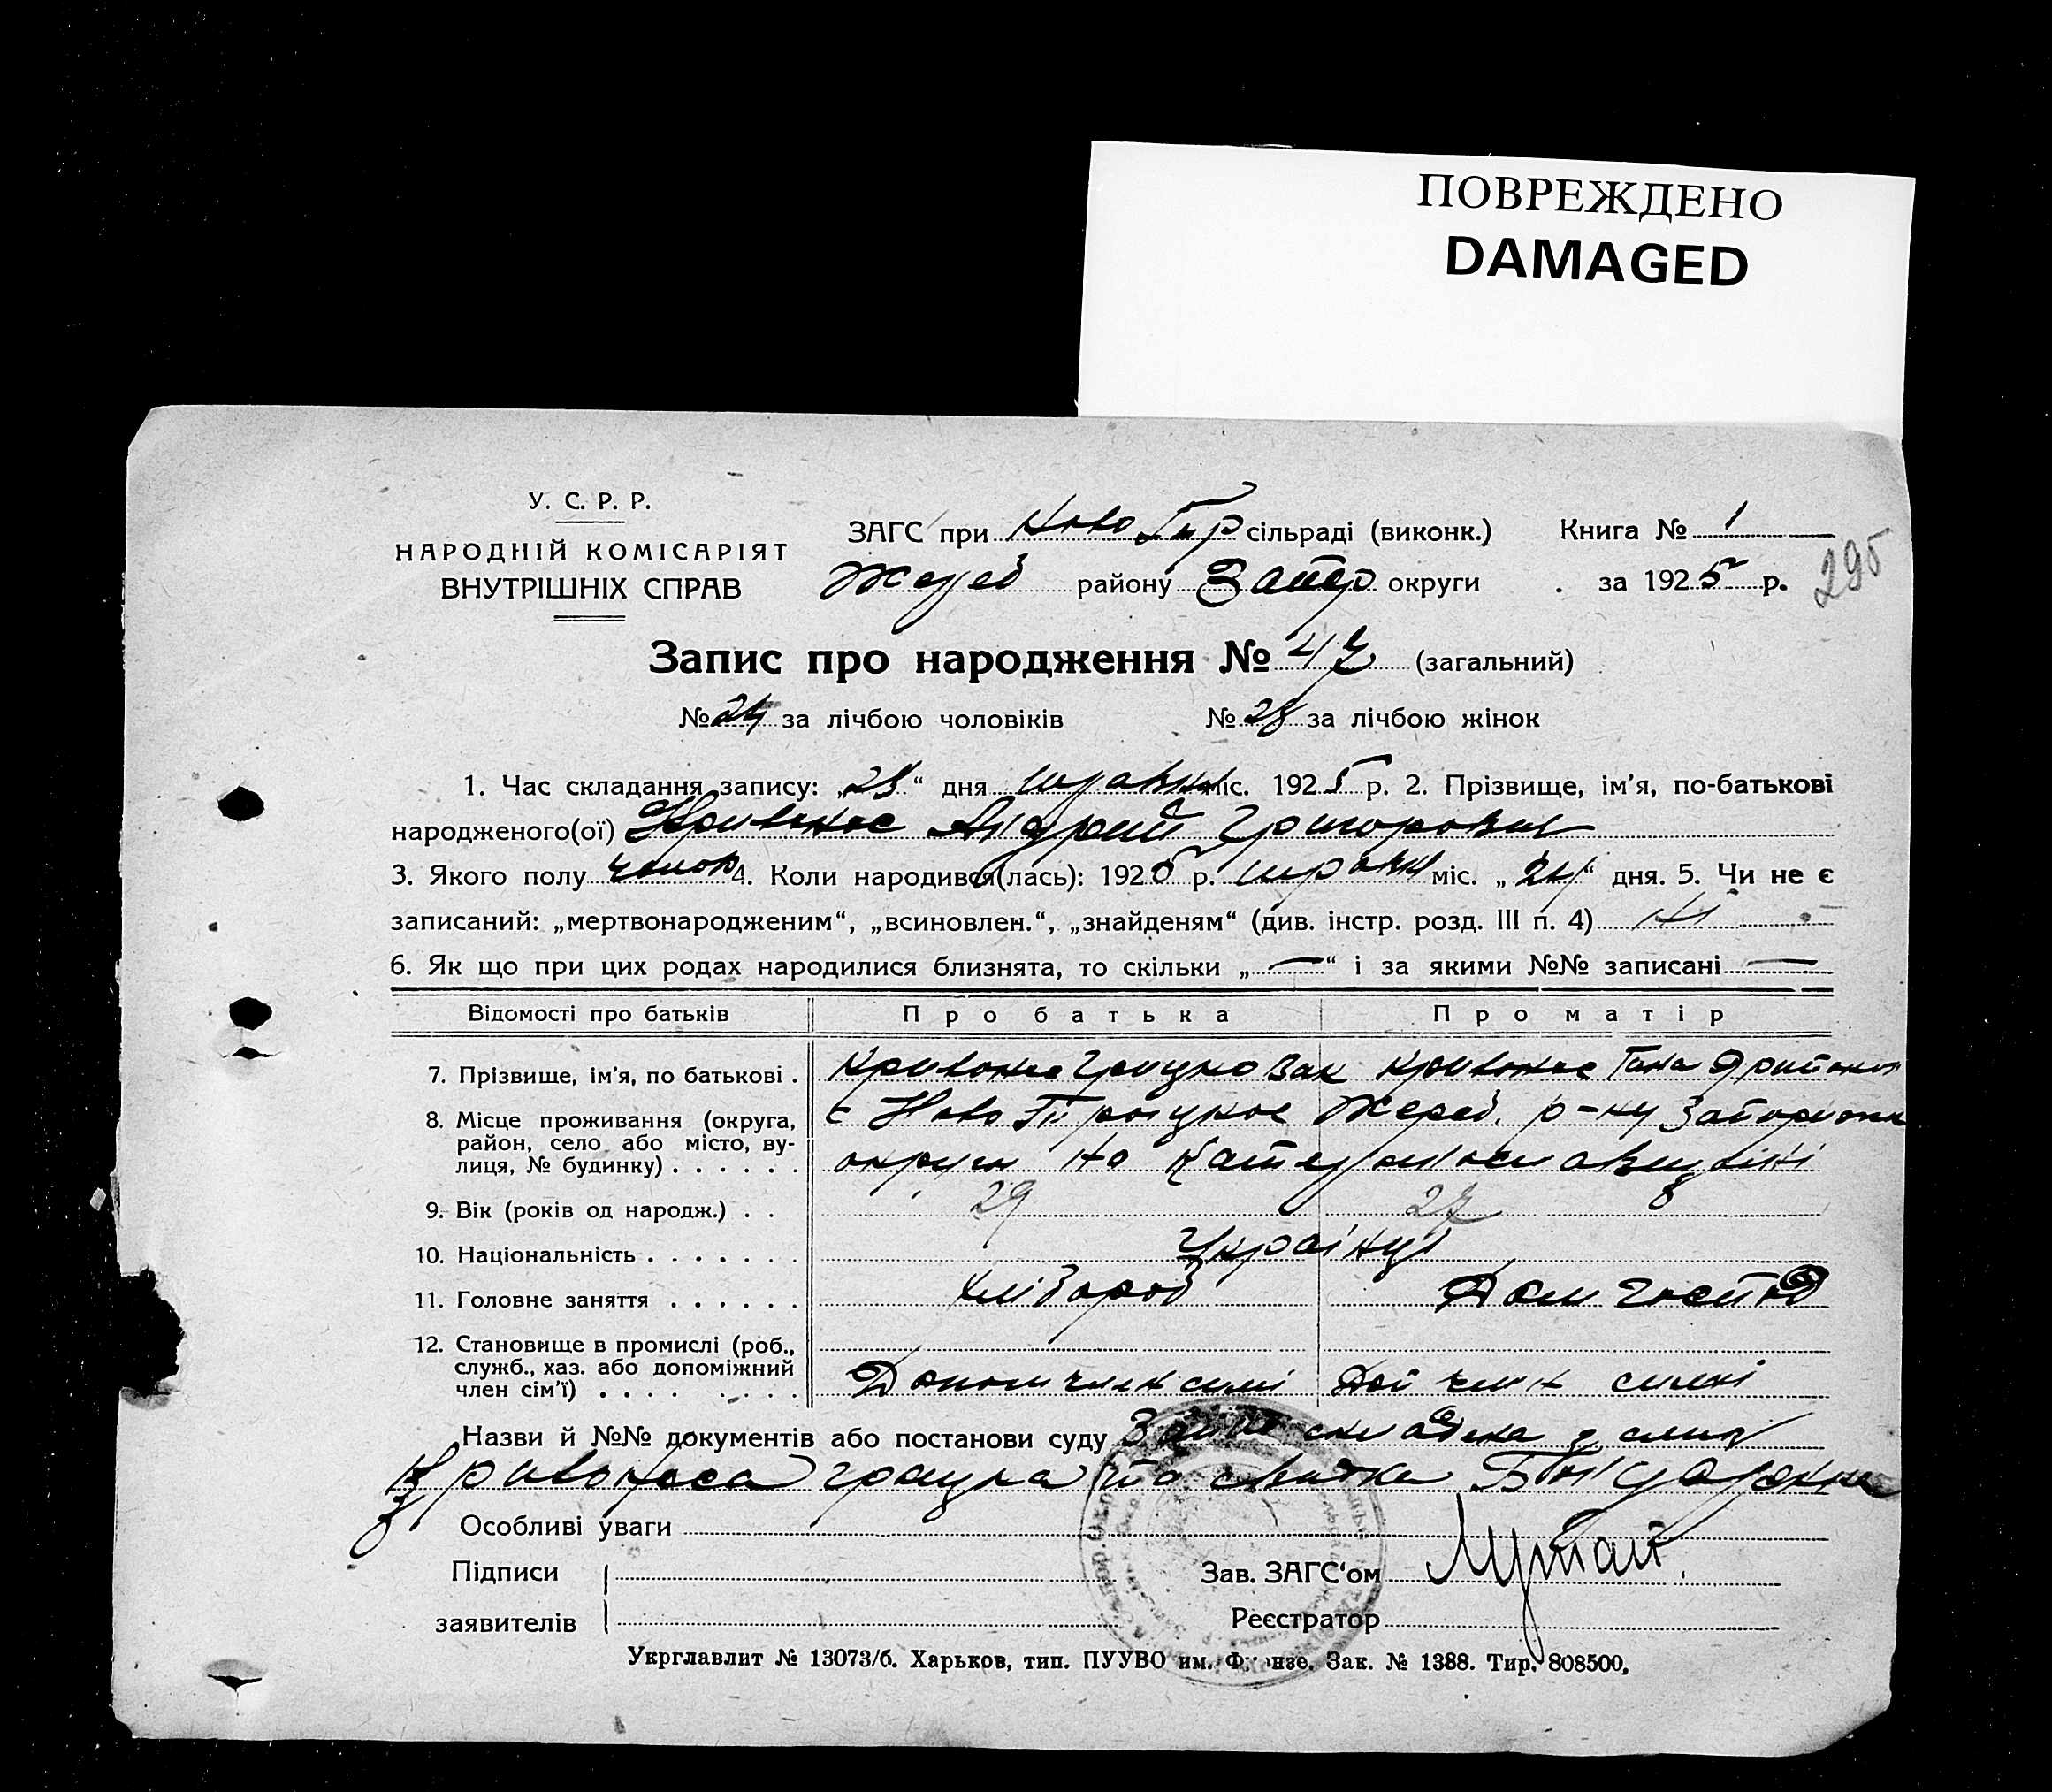 ПОВРЕЖДЕНО
DAMAGED
У. С. Р. Р.
НАРОДНІЙ КОМІСАРІЯТ
ВНУТРІШНІХ СПРАВ
ЗАГС при Ново Гур сільраді (виконк.) Книга № 1
Жереб району Запор округи за 1925 р.
295
Запис про народження № (загальний)
№ 24 за лічбою чоловіків № 28 за лічбою жінок
1. Час складання запису: „ “ дня травня міс. 1925 р. 2. Прізвище, ім’я, по-батькові
народженого(ої) Кривонос Андрий Григорович
3. Якого полу чолов 4. Коли народився(лась): 1925 р. травня міс. „24“ дня. 5. Чи не є
записаний: „мертвонародженим“, „всиновлен.“, „знайденям“ (див. інстр. розд. III п. 4) Ні
6. Як що при цих родах народилися близнята, то скільки „—“ і за якими №№ записані —
Відомості про батьків Про батька Про матір
7. Прізвище, ім’я, по батькові . Кривонос Грицко Кривонос
8. Місце проживання (округа, район, село або місто, вулиця, № будинку) . . . . . . с Ново Жереб. р-ну
округи на Катеринославщині
9. Вік (років од народж.) . . 29 27
10. Національність . . . . . . . Українці
11. Головне заняття . . . . . . хлібороб Дом господ
12. Становище в промислі (роб., служб., хаз. або допоміжний член сім’ї) . . . . . . . . Допом член сімї член сімї
Назви й №№ документів або постанови суду
Кривоноса Грицка та свитка
Особливі уваги
Підписи
заявителів
Зав. ЗАГС‘ом
Реєстратор
Укрглавлит № 13073/б. Харьков, тип. ПУУВО им. Фрунзе. Зак. № 1388. Тир. 808500.